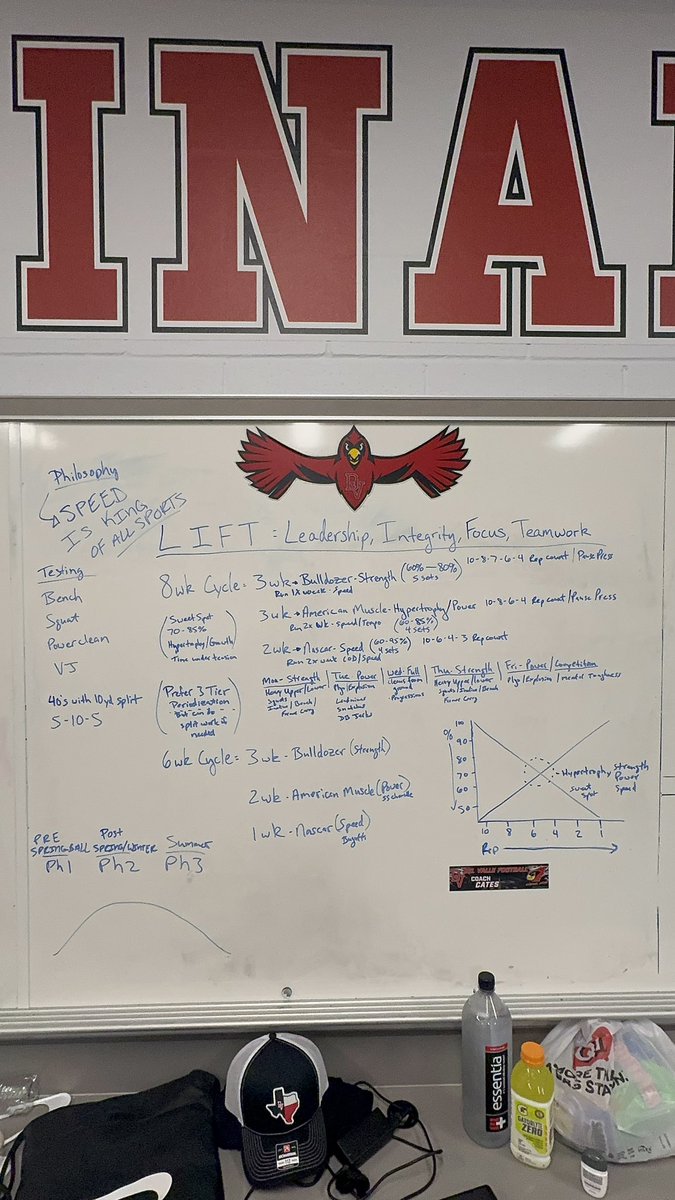 INA
DV
Philosophy
SPEED
IS KING
OF ALL SPORTS
LIFT = Leadership, Integrity, Focus, Teamwork
Testing
Bench
Squat
Powerclean
VJ
40's with 10yd split
5-10-5
8wk Cycle = 3wk → Bulldozer-Strength (60%-80%) 10-8-7-6-4 Rep count / Pause Press
5 sets
Run 1x week - Speed
3wk → American Muscle-Hypertrophy/Power 10-8-6-4 Rep count/Pause Press
Run 2x Wk - Speed/Tempo (60-85%)
4 sets
2wk → Nascar-Speed (60-95%) 10-6-4-3 Rep count
4 sets
Run 2x week COD/Speed
Sweet Spot
70-85%
Hypertrophy/Growth
Time under tension
Prefer 3 Tier
Periodization
But can do
split work if
needed
Mon-Strength
Heavy Upper/Lower
Squats
Incline/Bench/
Farmer Carry
Tue Power
Plyo/Explosion
Landmines
Snatches
DB Jerks
Wed-Full
Clean from
ground
Progressions
Thu-Strength
Heavy Upper/Lower
Squats/Incline/Bench
Farmer Carry
Fri-Power/Competition
Plyo/Explosion/mental Toughness
6wk Cycle = 3wk-Bulldozer (Strength)
2wk-American Muscle (Power)
1wk-Nascar (Speed)
%
100
90
80
70
60
50
10 8 6 4 2 1
Rep
Hypertrophy
sweet
spot
Strength
Power
Speed
PRE
SPRINGBALL
Ph1
Post
SPRING/WINTER
Ph2
Summer
Ph3
DEL VALLE FOOTBALL
COACH
CATES
essentia
G
GATORADE
ZERO